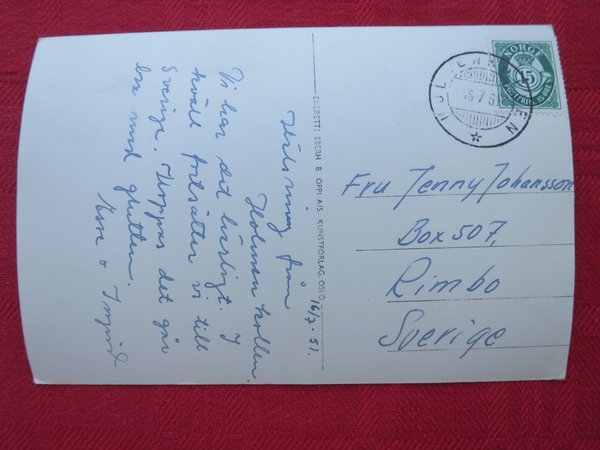 Hälsning från
Holmenkollen. 16/7. 51.
Vi har det härligt. I
kväll fortsätter vi till
Sverige. Hoppas det går
bra med glutten.
o Ingrid
ENERETT: EBERH. B. OPPI A/S KUNSTFORLAG, OSLO
NORGE
15
16 7 51
Fru Jenny Johansson
Box 507,
Rimbo
Sverige